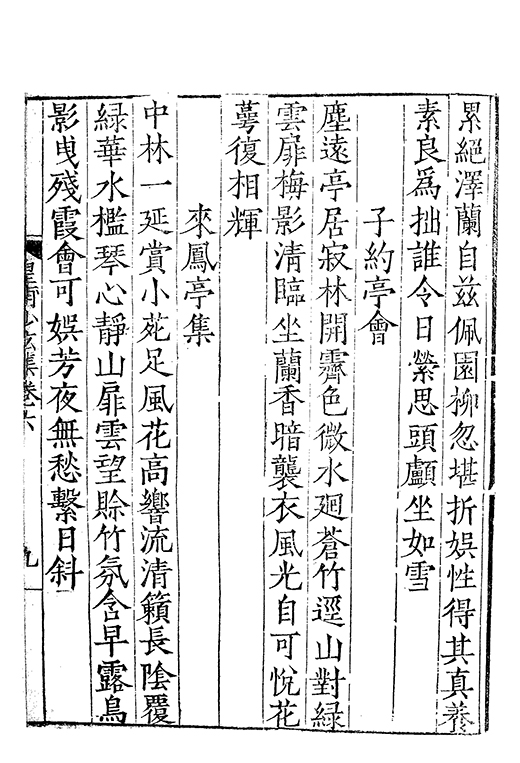 累絕澤蘭自兹佩園柳忽堪折娯性得其真養
素良爲拙誰令日縈思頭顱坐如雪
子約亭會
塵遠亭居寂林開霽色微水廻蒼竹逕山對緑
雲扉梅影清臨坐蘭香暗襲衣風光自可悅花
萼復相輝
來鳳亭集
中林一延賞小苑足風花高響流清籟長陰覆
緑華水檻琴心靜山扉雲望賒竹氛含早露鳥
影曳殘霞會可娯芳夜無愁繫日斜
皇甫少玄集卷六
九